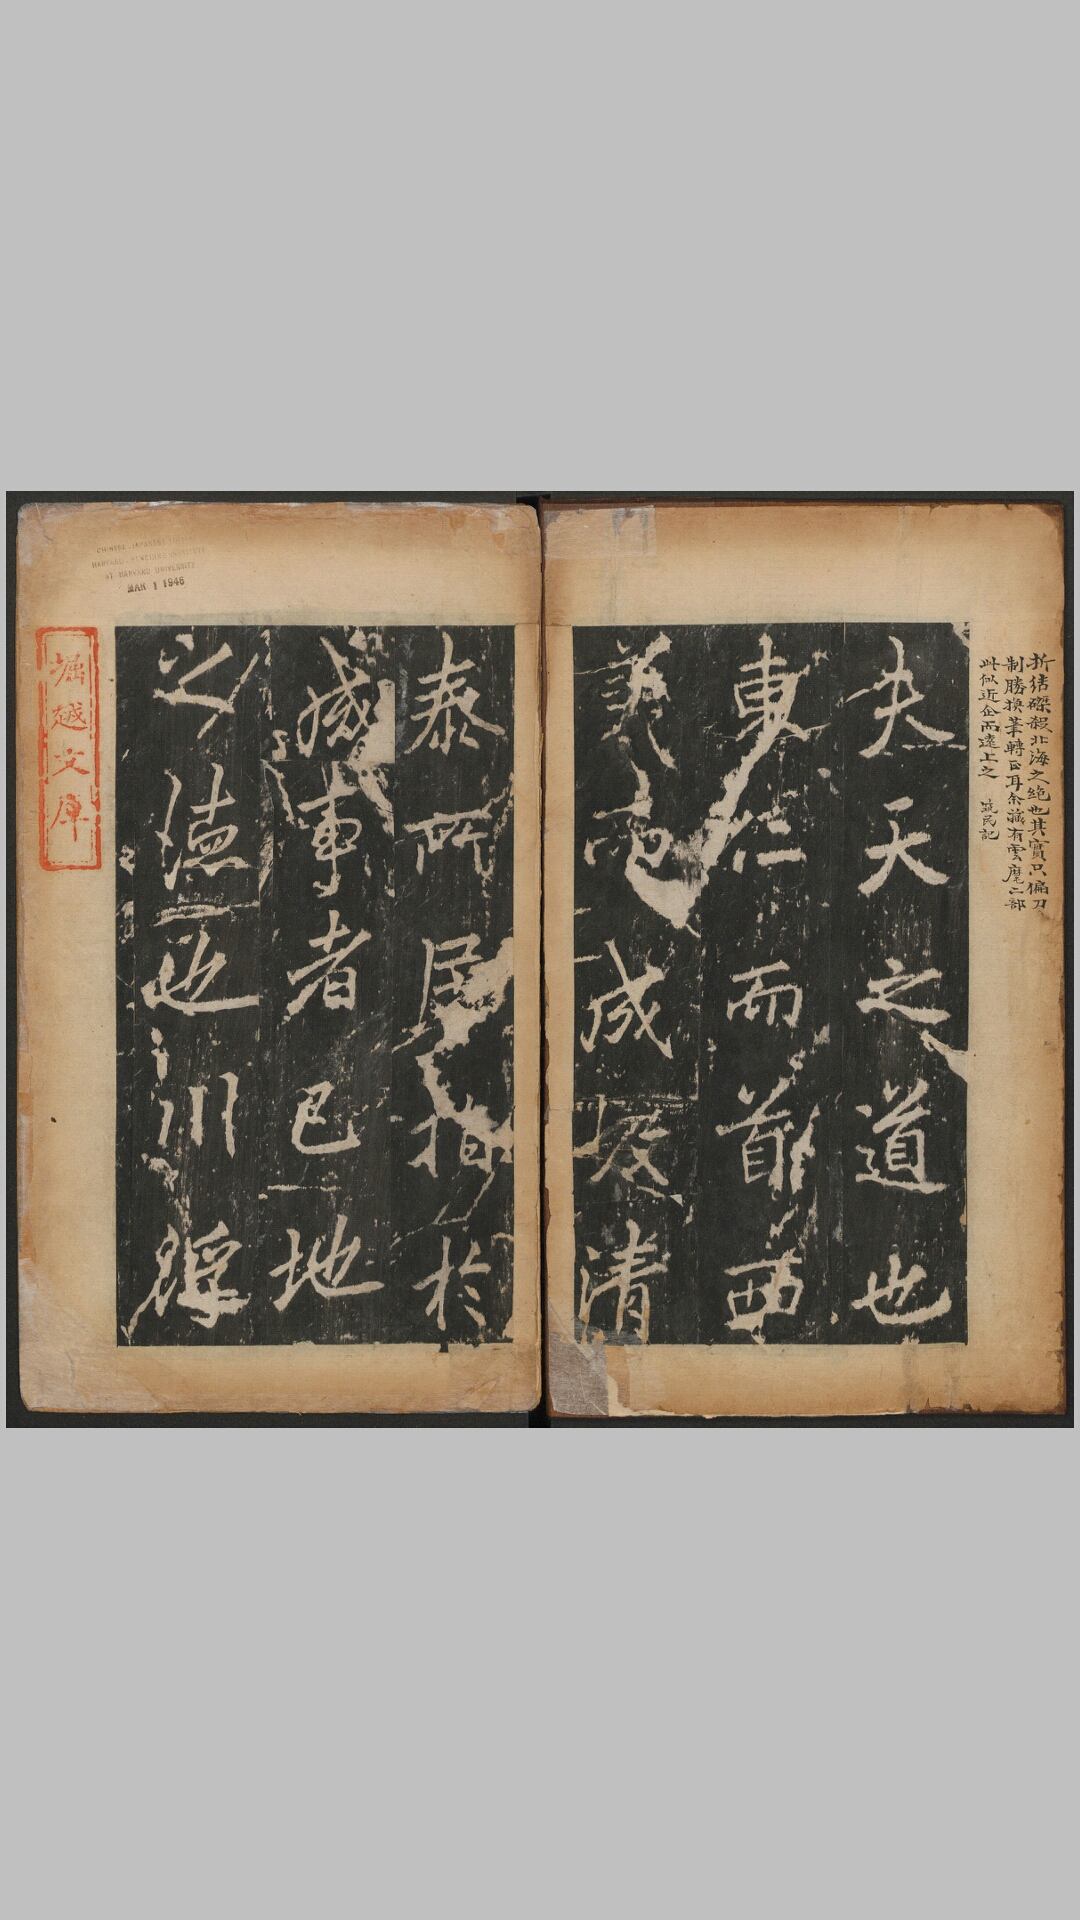 折结磔殺北海之絶也其實只偏刀
制勝換筆轉正耳余藏有雲麾二部
此似近企而遠上之 筑民記
夫天之道也
東仁而首西
義而成故清
泰所居指於
成事者已地
之德也川浮
CHINESE-JAPANESE LIBRARY
HARVARD-YENCHING INSTITUTE
AT HARVARD UNIVERSITY
MAR 1 1946
堀越文庫